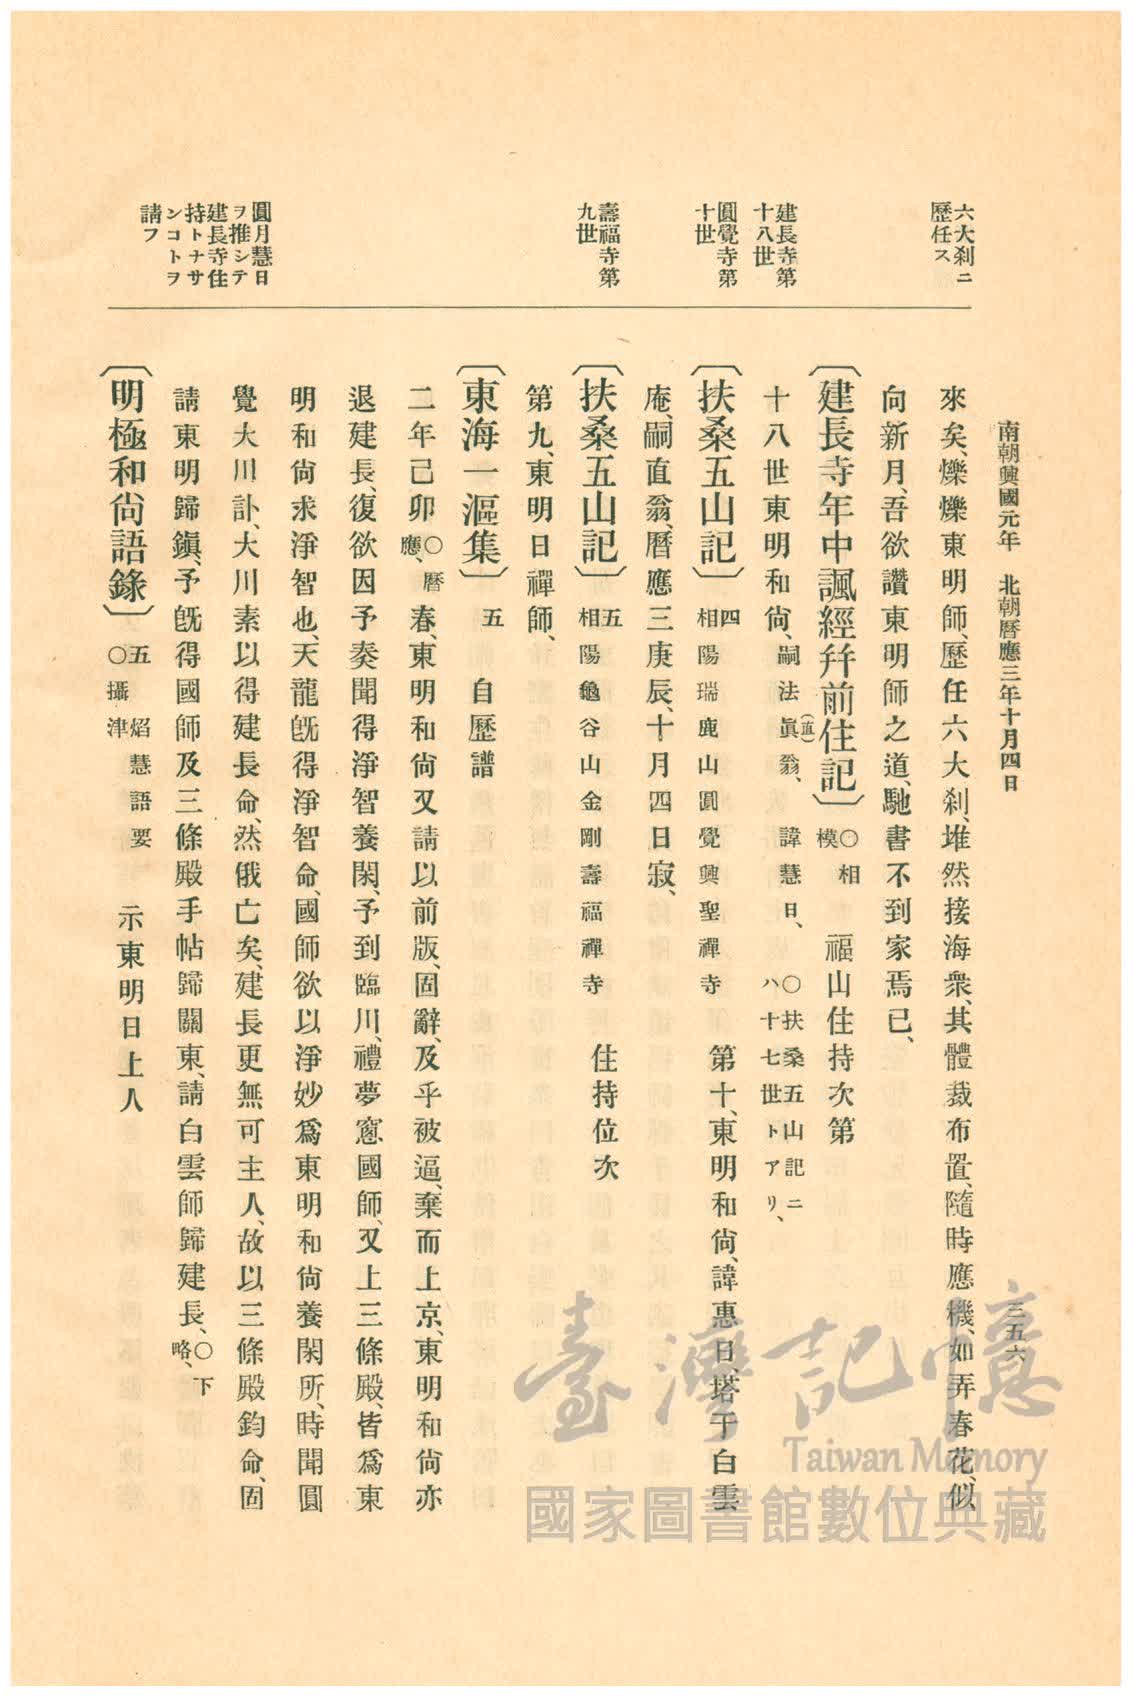 南朝興國元年　北朝曆應三年十月四日
三五六
六大刹ニ
歷任ス
建長寺第
十八世
圓覺寺第
十世
壽福寺第
九世
圓月慧日
ヲ推シテ
建長寺住
持トナサ
ンコトヲ
請フ
來矣、爍爍東明師、歷任六大刹、堆然接海衆、其體裁布置、隨時應機、如弄春花、似
向新月、吾欲讚東明師之道、馳書不到家焉已、
〔建長寺年中諷經幷前住記〕○相模　福山住持次第
十八世東明和尙、嗣法眞(直)翁、諱慧日、○扶桑五山記ニハ十七世トアリ、
〔扶桑五山記〕四 相陽瑞鹿山圓覺興聖禪寺　第十、東明和尙、諱惠日、塔于白雲
庵、嗣直翁、曆應三庚辰、十月四日寂、
〔扶桑五山記〕五 相陽龜谷山金剛壽福禪寺　住持位次
第九、東明日禪師、
〔東海一漚集〕五　自歷譜
二年己卯○曆應、春、東明和尙又請以前版、固辭、及乎被逼、棄而上京、東明和尙亦
退建長、復欲因予奏聞得淨智養閑、予到臨川、禮夢窻國師、又上三條殿、皆爲東
明和尙求淨智也、天龍旣得淨智命、國師欲以淨妙爲東明和尙養閑所、時聞圓
覺大川訃、大川素以得建長命、然俄亡矣、建長更無可主人、故以三條殿鈞命、固
請東明歸鎭、予旣得國師及三條殿手帖歸關東、請白雲師歸建長、○下略、
〔明極和尙語錄〕五 焰慧語要 ○攝津　示東明日上人
臺灣記憶
Taiwan Memory
國家圖書館數位典藏